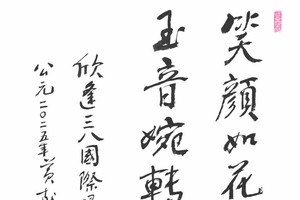 笑顏如花
玉音婉轉
欣逢三八國際
公元二〇二五年黃